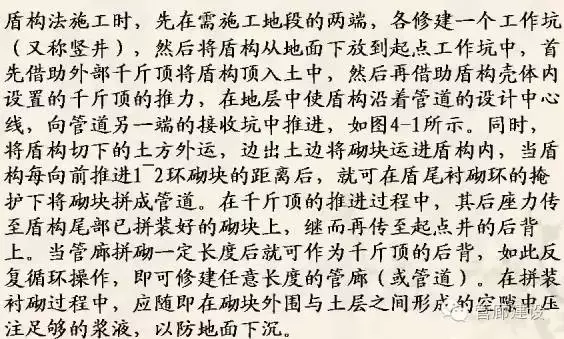 盾构法施工时，先在需施工地段的两端，各修建一个工作坑
（又称竖井），然后将盾构从地面下放到起点工作坑中，首
先借助外部千斤顶将盾构顶入土中，然后再借助盾构壳体内
设置的千斤顶的推力，在地层中使盾构沿着管道的设计中心
线，向管道另一端的接收坑中推进，如图4-1所示。同时，
将盾构切下的土方外运，边出土边将砌块运进盾构内，当盾
构每向前推进1~2环砌块的距离后，就可在盾尾衬砌环的掩
护下将砌块拼成管道。在千斤顶的推进过程中，其后座力传
至盾构尾部已拼装好的砌块上，继而再传至起点井的后背
上。当管廊拼砌一定长度后就可作为千斤顶的后背，如此反
复循环操作，即可修建任意长度的管廊（或管道）。在拼装
衬砌过程中，应随即在砌块外围与土层之间形成的空隙中压
注足够的浆液，以防地面下沉。
管廊建设